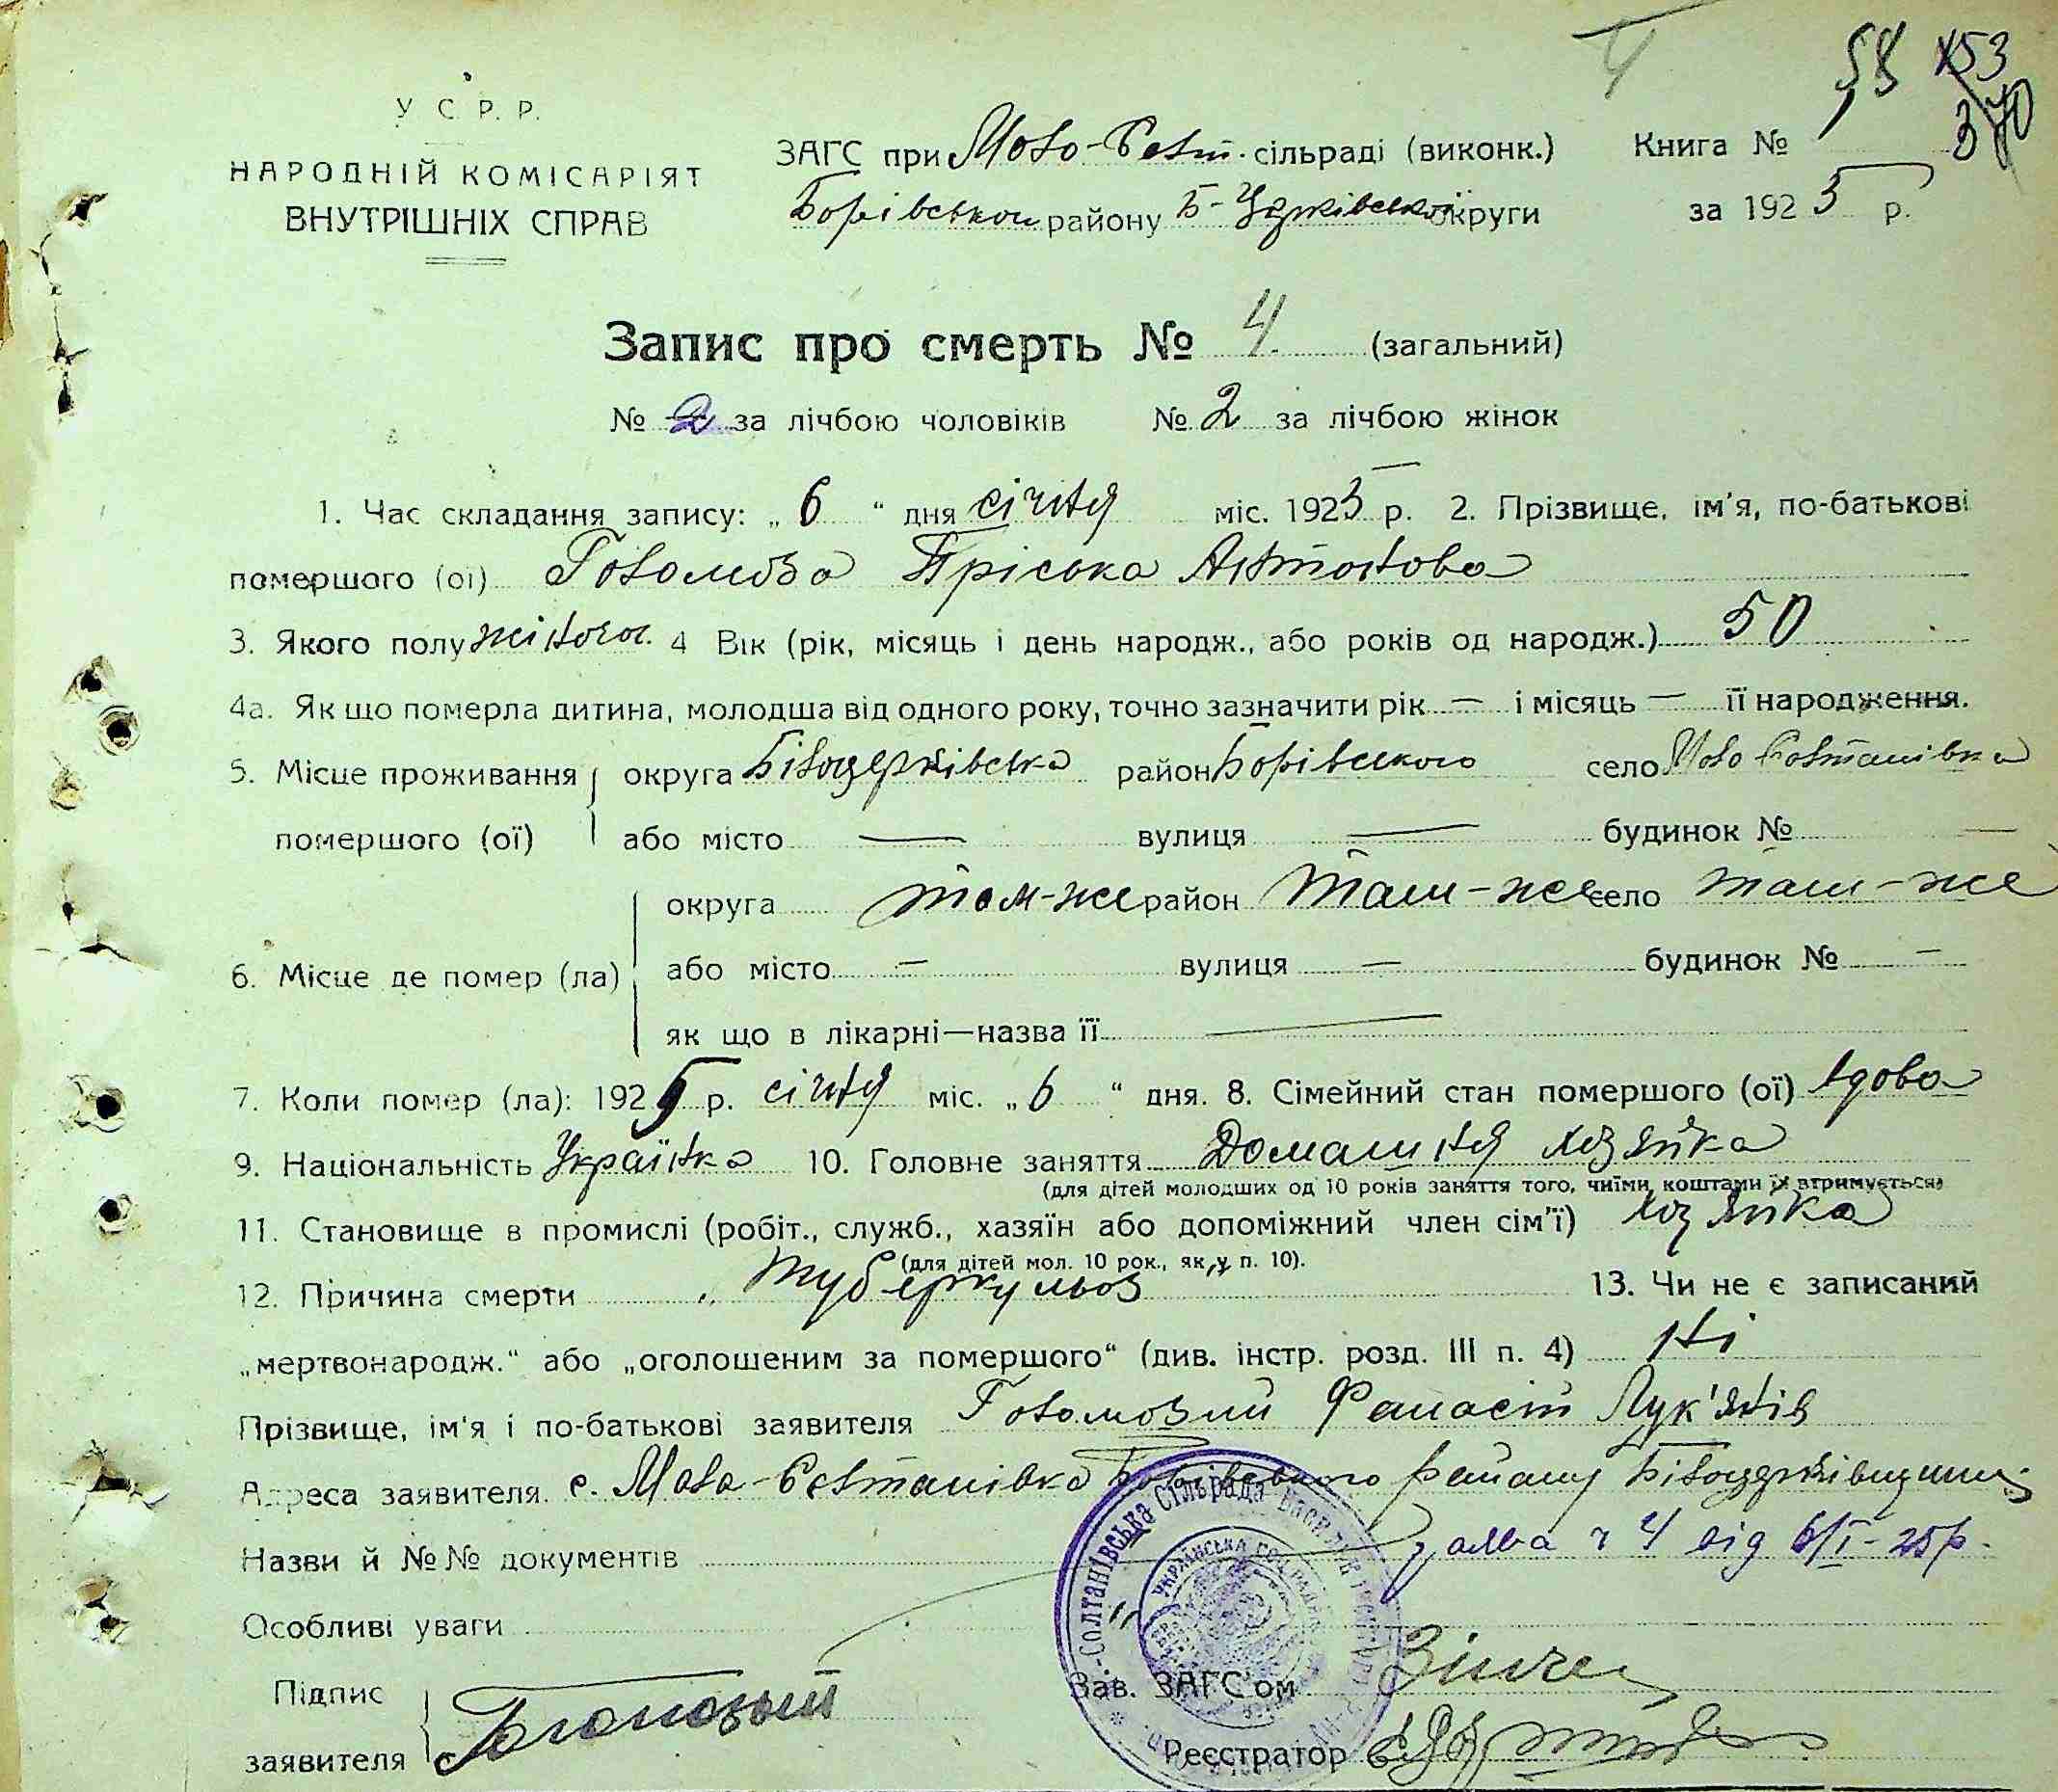 4
53
370
У С Р. Р.
НАРОДНІЙ КОМІСАРІЯТ
ВНУТРІШНІХ СПРАВ
ЗАГС при Мало-Солт. сільраді (виконк.)
Борівськом району Б-Церківської округи
Книга №
за 1925 р.
Запис про смерть № 4. (загальний)
№ за лічбою чоловіків № 2 за лічбою жінок
1. Час складання запису: „ 6 " дня січня міс. 1925 р. 2. Прізвище, ім'я, по-батькові
помершого (ої) Голомоза Пріська Антонова
3. Якого полу жіночої. 4 Вік (рік, місяць і день народж., або років од народж.) 50
4а. Як що померла дитина, молодша від одного року, точно зазначити рік — і місяць — її народження.
5. Місце проживання помершого (ої)
округа Білоцерківська район Борівського село Мало Солтанівка
або місто — вулиця — будинок № —
6. Місце де помер (ла)
округа там-же район там-же село там-же
або місто — вулиця — будинок № —
як що в лікарні—назва її —
7. Коли помер (ла): 1925 р. січня міс. „ 6 " дня. 8. Сімейний стан помершого (ої) вдова
9. Національність Українка 10. Головне заняття Домашня хозяйка
(для дітей молодших од 10 років заняття того, чиїми коштами їх втримується)
11. Становище в промислі (робіт., служб., хазяїн або допоміжний член сім'ї) хозяйка
(для дітей мол. 10 рок., як у п. 10).
12. Причина смерти туберкульоз 13. Чи не є записаний
„мертвонародж." або „оголошеним за помершого" (див. інстр. розд. III п. 4) Ні
Прізвище, ім'я і по-батькові заявителя Голомозий Панас Лук'янів
Адреса заявителя. с. Мала-Солтанівка Борівського району Білоцерківщини
Назви й №№ документів заява ч 4 від 6/I-25р.
Особливі уваги
Підпис заявителя
Зав. ЗАГС'ом
Реєстратор
-Солтанівська Сільрада